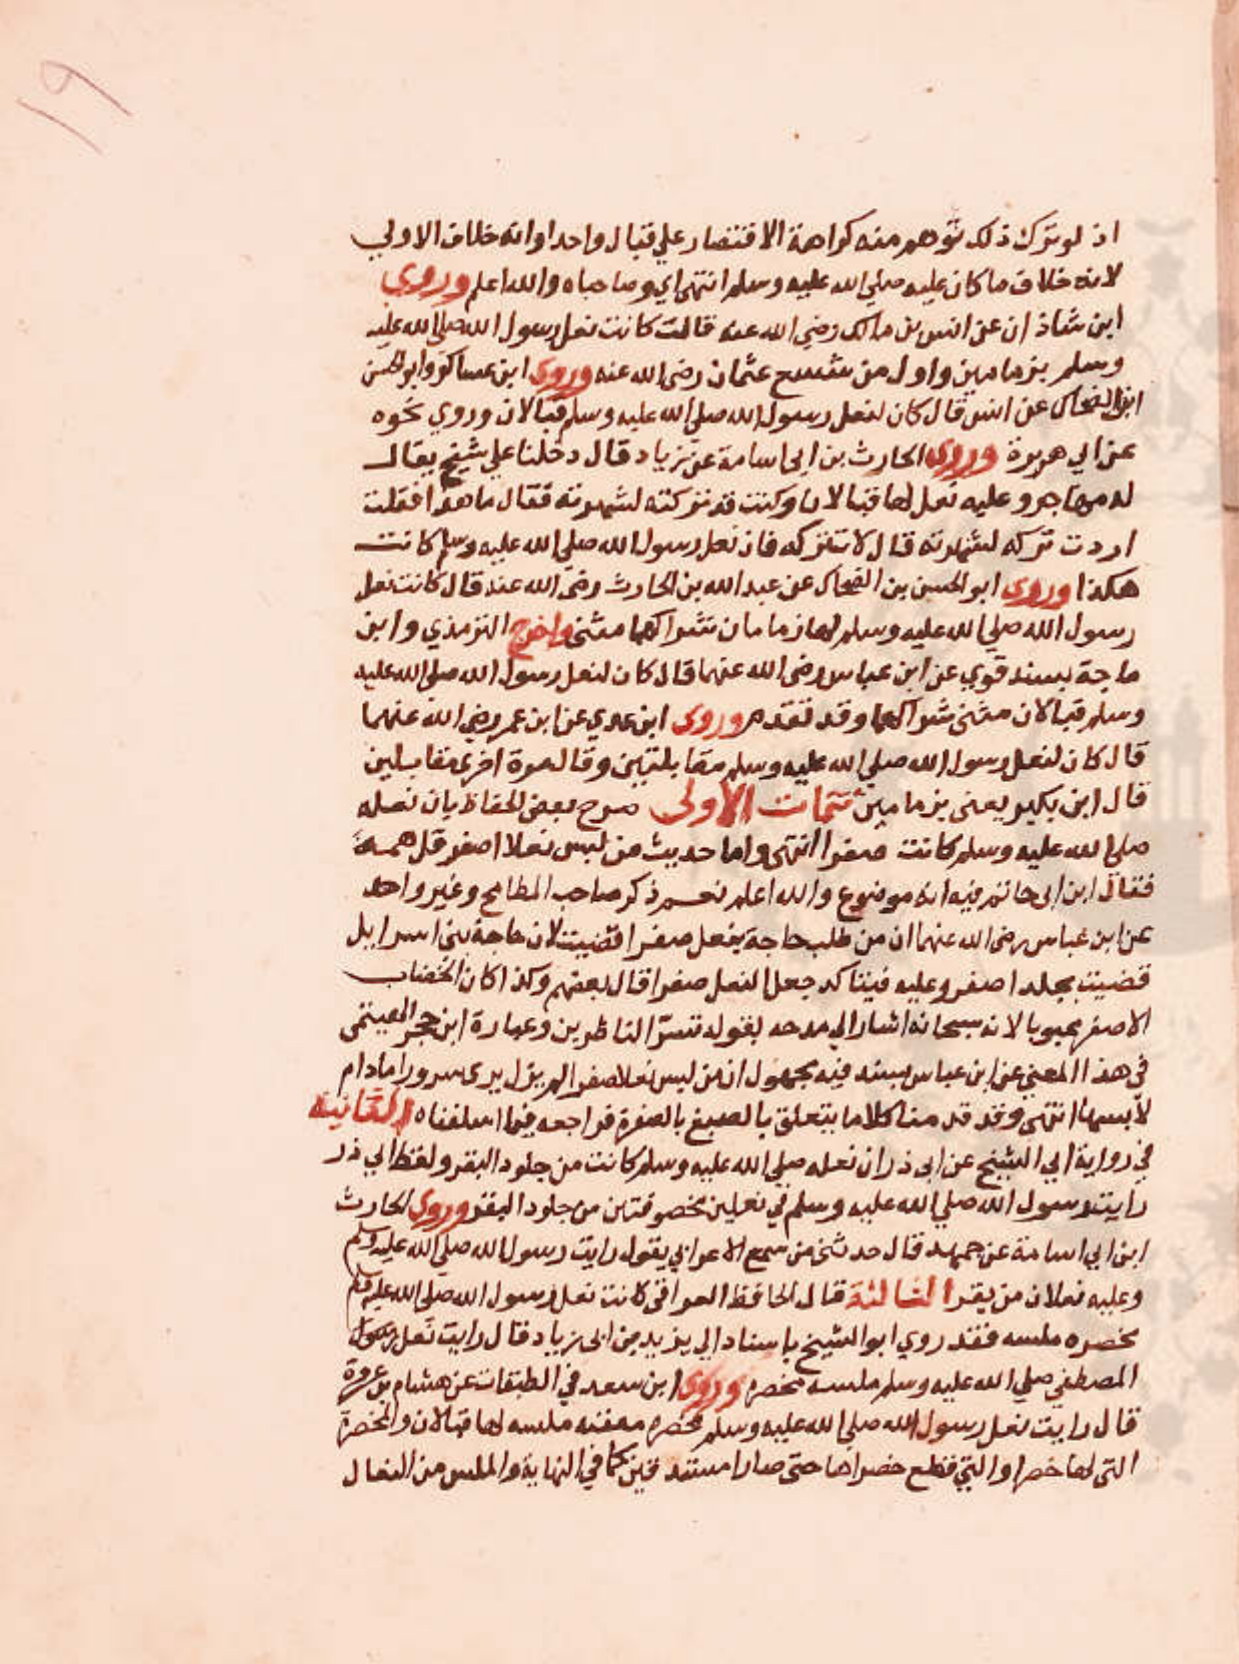 ١٩
اذ لو ترك ذلك توهم منه كراهة الاقتصار علي قبال واحد اوانه خلاف الاولي
لانه خلاف ما كان عليه صلي الله عليه وسلم انتهى اي وصاحباه والله اعلم وروي
ابن شاذان عن انس بن مالك رضي الله عنه قالت كانت نعل رسول الله صلي الله عليه
وسلم بزمامين واول من شسع عثمان رضي الله عنه وروى ابن عساكر وابو الحسن
ابن الضحاك عن انس قال كان لنعل رسول الله صلي الله عليه وسلم قبالان وروي نحوه
عن ابي هريرة وروى الحارث بن ابي اسامة عن زياد قال دخلنا علي شيخ يقال
له مهاجر وعليه نعل لها قبالان وكنت قد تركته لشهرته فقال ما هذا فقلت
اردت تركه لشهرته قال لا تتركه فان نعل رسول الله صلي الله عليه وسلم كانت
هكذا وروى ابو الحسن بن الضحاك عن عبد الله بن الحارث رضي الله عنه قال كانت نعل
رسول الله صلي الله عليه وسلم لها زمامان شراكهما مثنى واخرج الترمذي وابن
ماجة بسند قوي عن ابن عباس رضي الله عنهما قال كان لنعل رسول الله صلي الله عليه
وسلم قبالان مثنى شراكهما وقد تقدم وروى ابن عدي عن ابن عمر رضي الله عنهما
قال كان لنعل رسول الله صلي الله عليه وسلم مقابلتين وقال مرة اخرى مقابلين
قال ابن بكير يعنى بزمامين تتمات الاولى صرح بعض الحفاظ بان نعله
صلي الله عليه وسلم كانت صفرا انتهى واما حديث من لبس نعلا اصفر قل همه
فقال ابن ابي حاتم فيه انه موضوع والله اعلم نعم ذكر صاحب المطامح وغير واحد
عن ابن عباس رضي الله عنهما ان من طلب حاجة بنعل صفرا قضيت لان حاجة بني اسرايل
قضيت بجلد اصفر وعليه فيتاكد جعل النعل صفرا قال بعضهم وكذا كان الخضاب
الاصفر محبوبا لانه سبحانه اشار الي مدحه بقوله تسر الناظرين وعبارة ابن حجر الهيتمى
في هذا المعني عن ابن عباس بسند فيه مجهول ان من لبس نعلا صفرا لم يزل يرى سرورا مادام
لابسها انتهى وقد قدمنا كلاما يتعلق بالصبغ بالصفرة فراجعه فيما اسلفناه الثانية
في رواية ابي الشيخ عن ابي ذر ان نعله صلي الله عليه وسلم كانت من جلود البقر ولفظ ابي ذر
رايت رسول الله صلي الله عليه وسلم في نعلين مخصوفتين من جلود البقر وروى الحارث
ابن ابي اسامة عن حميد قال حدثني من سمع الاعرابي يقول رايت رسول الله صلي الله عليه وسلم
وعليه نعلان من بقر الثالثة قال الحافظ العراقى كانت نعل رسول الله صلي الله عليه وسلم
مخصره ملسنه فقد روي ابو الشيخ باسناد الي يزيد بن ابي زياد قال رايت نعل رسول الله
المصطفي صلي الله عليه وسلم ملسنه مخصره وروى ابن سعد في الطبقات عن هشام بن عروة
قال رايت نعل رسول الله صلي الله عليه وسلم مخصره معقبه ملسنه لها قبالان والمخصرة
التى لها خصر او التي قطع خصراها حتى صارا مستدقين كما في النهاية والملسن من النعال